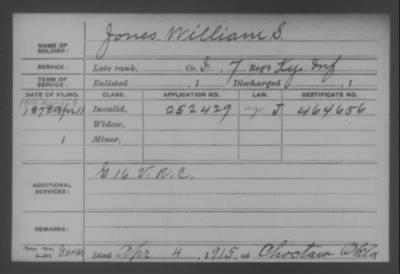 Jones William S.
NAME OF SOLDIER:
SERVICE: Late rank, Co. I, 7 Reg't Ky. Inf
TERM OF SERVICE: Enlisted , 1 Discharged , 1
DATE OF FILING. CLASS. APPLICATION NO. LAW. CERTIFICATE NO.
1878 Apr 11 Invalid, 252429 J 464656
1 Widow,
Minor,
G 16 V. R. C.
ADDITIONAL SERVICES:
REMARKS:
Died Apr 4, 1915, at Choctaw Okla